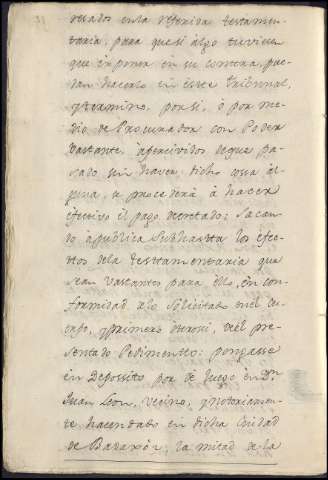 resados enla referida testamen-
taria, para que si algo tuvieren
que exponer en su contra, pue-
dan hacerlo en este Tribunal,
y termino, por sí, ó por me-
dio, de Procurador con Poder
bastante, apercividos deque pa-
sado sin haver, dicho cosa al-
guna, se procederà à hacer
efectivo el pago decretado; Sacan-
do apublica Subhasta los efec-
ttos dela testamentaria que
sean vastantes para ello, en con-
formidad, alo Solicitado en el cu-
erpo, y primero otrosi, del pre-
sentado Pedimento: pongasse
en Depossito por de luego en Dn.
Juan Leon, vecino, y notoriamen-
te hacendado en dicha Ciudad
de Barajòn; la mitad de la